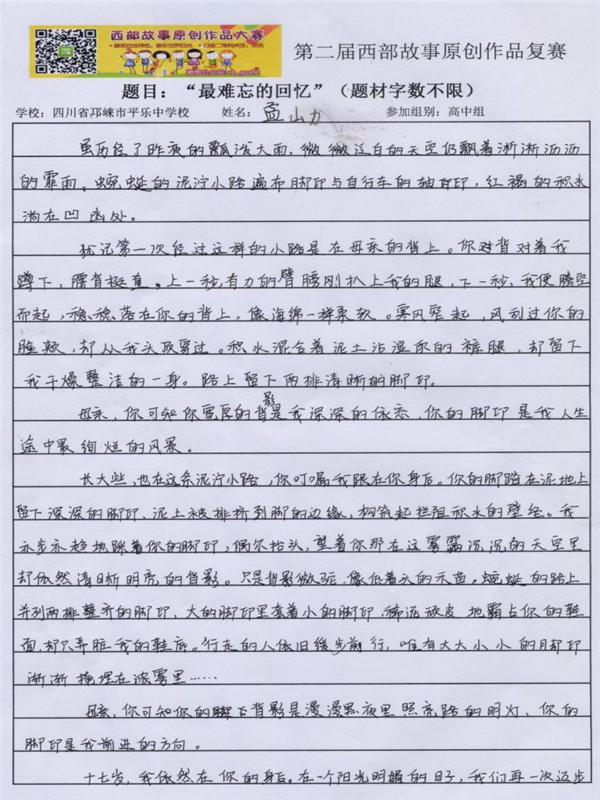 西部故事原创作品大赛
第二届西部故事原创作品复赛
题目：“最难忘的回忆”（题材字数不限）
学校：四川省邛崃市平乐中学校 姓名：孟山力 参加组别：高中组
虽历经了昨夜的瓢泼大雨，微微泛白的天空仍飘着淅淅沥沥
的霏雨。蜿蜒的泥泞小路遍布脚印与自行车的轴印，红褐的积水
淌在凹凼处。
犹记第一次经过这样的小路是在母亲的背上。你对背对着我
蹲下，腰背挺直。上一秒，有力的臂腰刚扒上我的腿，下一秒，我便腾空
而起，稳稳落在你的背上，像海绵一样柔软。寒风窄起，风刮过你的
脸颊，却从我头顶窜过。积水混合着泥土沾湿你的裤腿，却留下
我干燥整洁的一身。路上留下两排清晰的脚印。
母亲，你可知你宽厚的背影是我深深的依恋，你的脚印是我人生
途中最绚烂的风景。
长大些，也在这条泥泞小路，你叮嘱我跟在你身后。你的脚踏在泥地上
留下深深的脚印，泥土被排挤到脚的边缘，构筑起拦阻积水的壁垒。我
亦步亦趋地踩着你的脚印，偶尔抬头，望着你那在这雾霭沉沉的天空里
却依然清晰明亮的背影。只是背影微驼，像低着头的禾苗。蜿蜒的路上
并列两排整齐的脚印，大的脚印里套着小的脚印，稀泥顽皮地霸占你的鞋
面，却只弄脏我的鞋底。行走的人依旧缓步前行，唯有大大小小的脚印
渐渐掩埋在浓雾里……
母亲，你可知你的脚下背影是漫漫黑夜里照亮路的明灯，你的
脚印是我前进的方向。
十七岁，我依然在你的身后。在一个阳光明媚的日子，我们再一次迈步